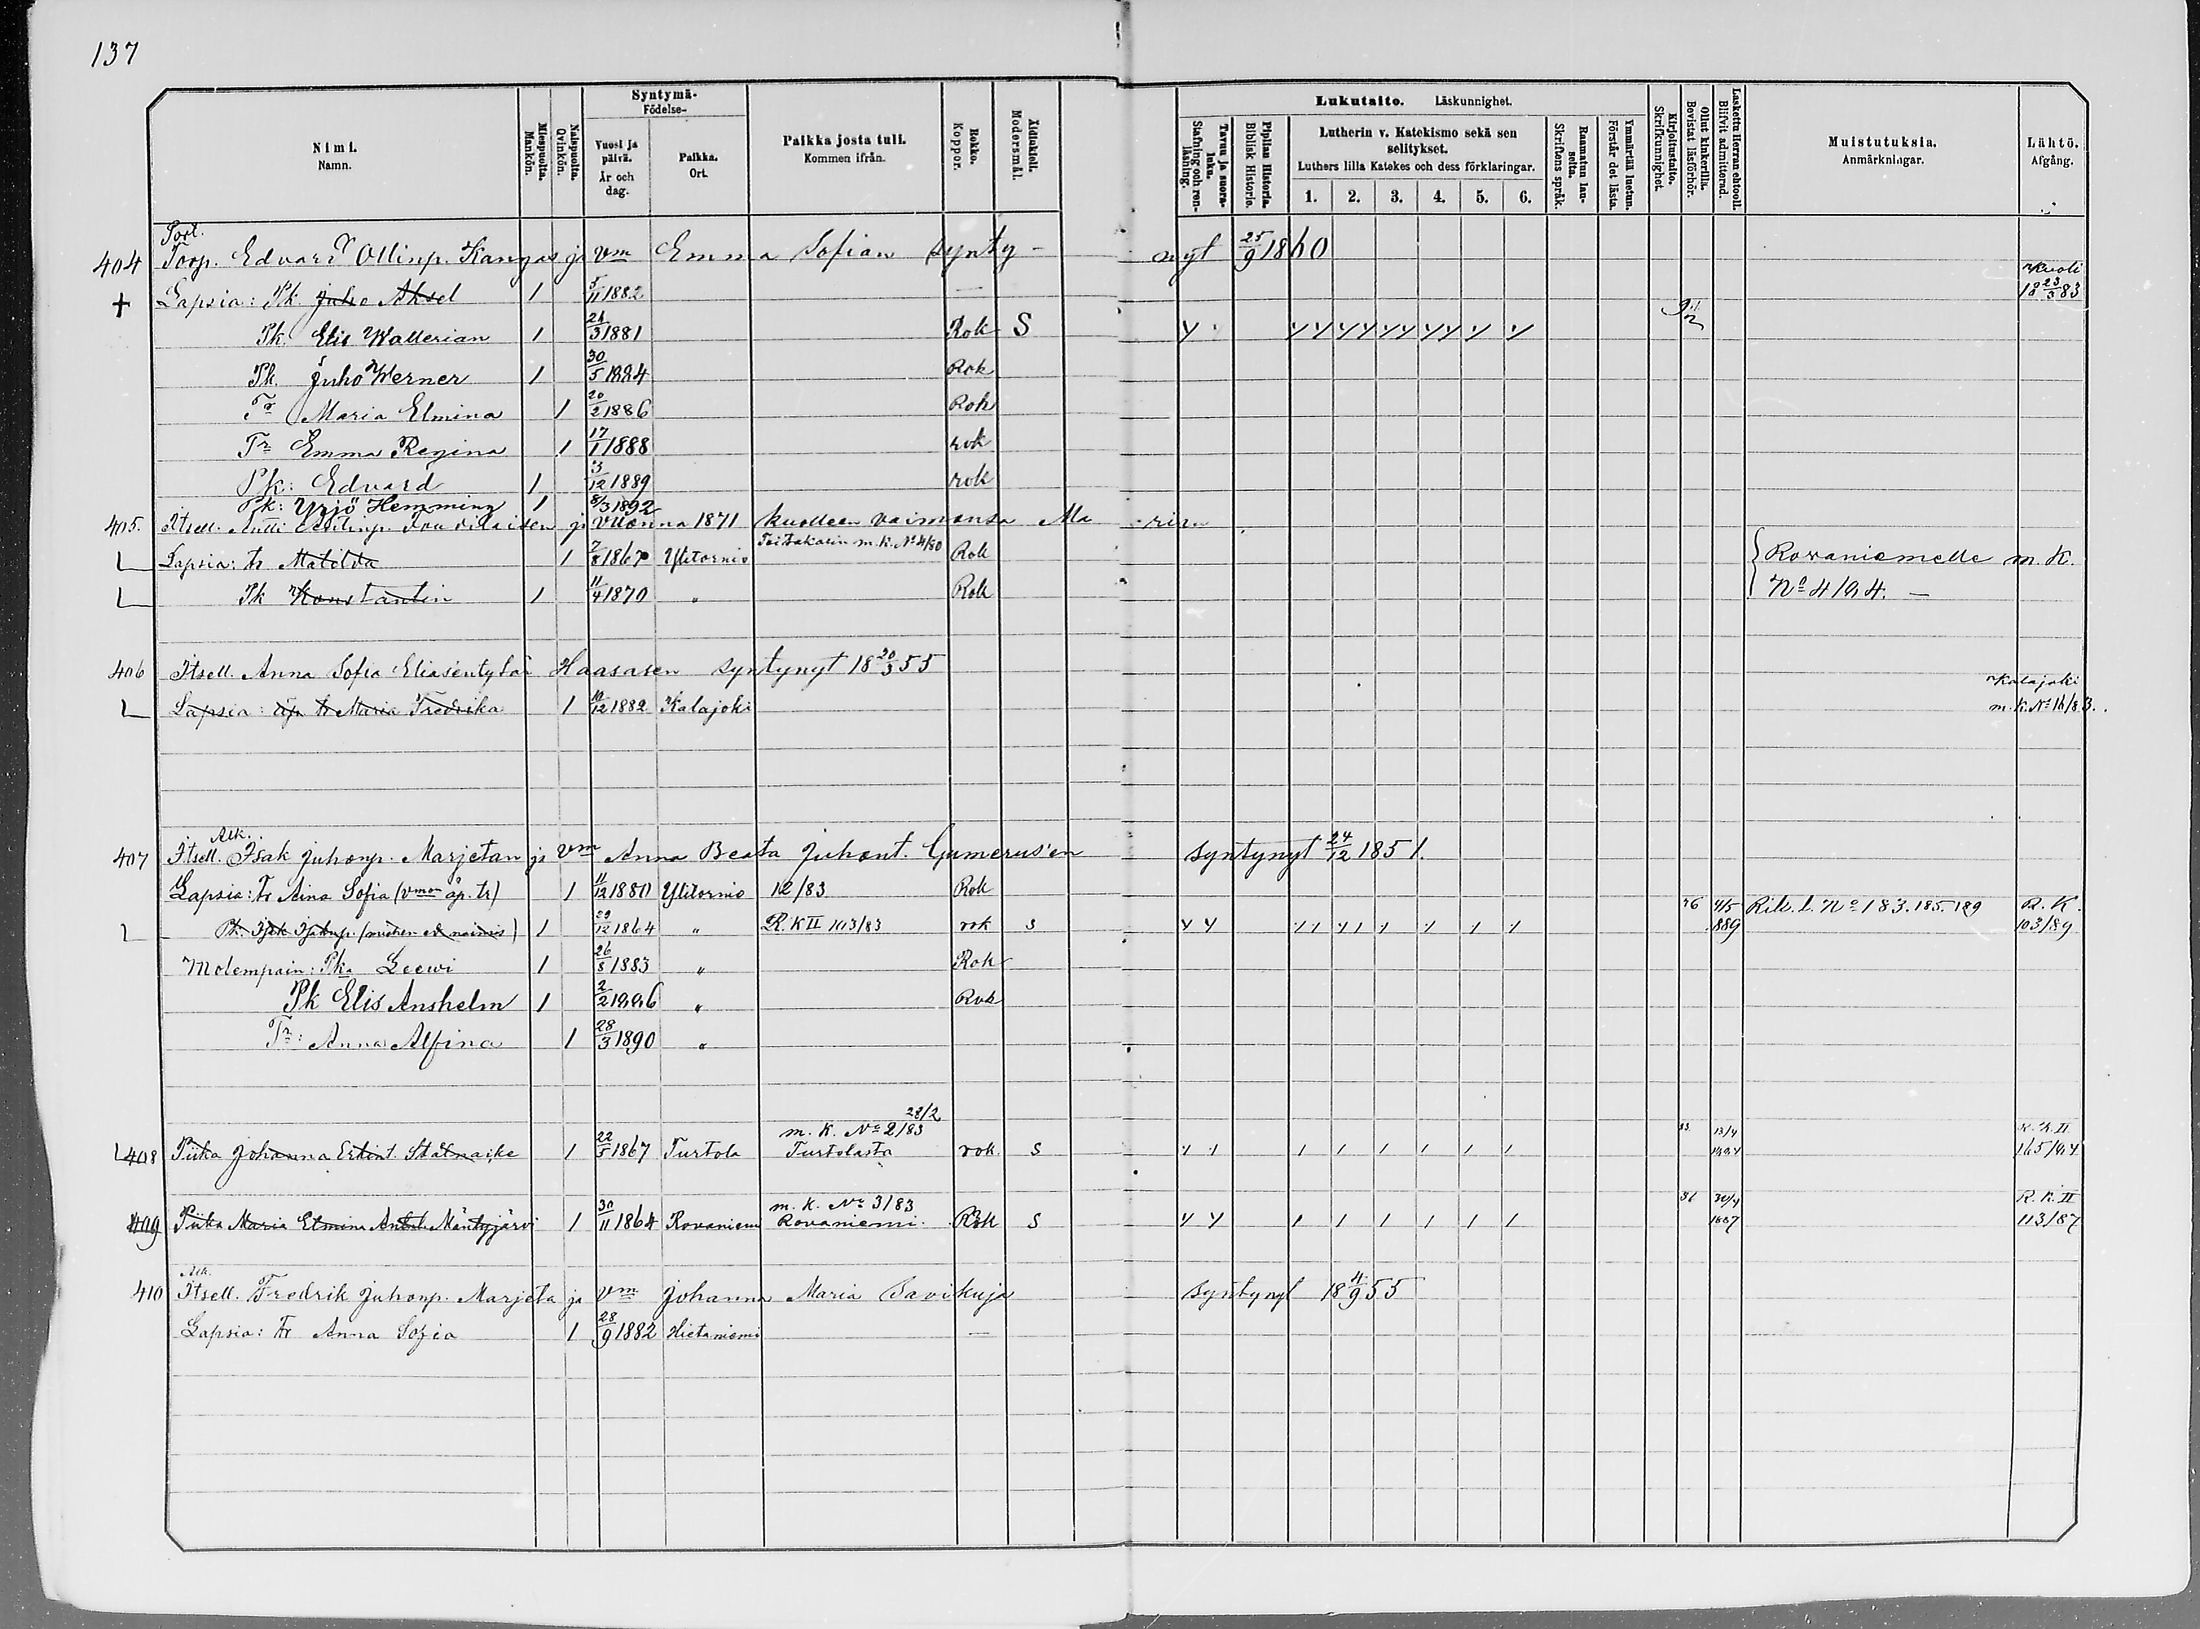 137
Nimi.
Namn.
Miespuolta.
Mankön.
Naispuolta.
Qvinkön.
Syntymä-
Födelse-
Vuosi ja päivä.
År och dag.
Paikka.
Ort.
Paikka josta tuli.
Kommen ifrån.
Rokko.
Koppor.
Äidinkieli.
Modersmål.
Lukutaito. Läskunnighet.
Tavuu ja suora-luku.
Stafning och ren-läsning.
Piplian Historia.
Biblisk Historie.
Lutherin v. Katekismo sekä sen selitykset.
Luthers lilla Katekes och dess förklaringar.
1. 2. 3. 4. 5. 6.
Raamatun lau-seita.
Skriftens språk.
Ymmärtää luetun.
Förstår det lästa.
Kirjoitustaito.
Skrifkunnighet.
Ollut kinkerillä.
Bevistat läsförhör.
Laskettu Herran ehtooll.
Blifvit admitterad.
Muistutuksia.
Anmärkningar.
Lähtö.
Afgång.
404 Torp. Edvard Ollinp. Kangas ja vm Emma Sofian synty- nyt 25/9 1860
+ Lapsia: Pk. Juho Aksel 1 5/11 1882 — Kuoli 18 23/3 83
Pk. Elis Wallerian 1 3 1881 Rok S
Pk. Juho Werner 1 30/5 1884 Rok
Tr Maria Elmina 1 20/2 1886 Rok
Tr Emma Regina 1 17/1 1888 rok
Pk: Edvard 1 3/12 1889 rok
Pk: Yrjö Hemming 1 8/3 1892
405. Itsell. Antti ja Vuonna 1871 kuolleen vaimonsa Ma- rian
Lapsia: tr Matilda 1 7/8 1867 Ylitornio m. K. No 4/80 Rok { Rovaniemelle m. K.
Pk Konstantin 1 11/4 1870 " Rok No 4/84. —
406 Itsell. Anna Sofia Eliasentytär Haasasen syntynyt 18 20/3 55
Lapsia: äp. tr Maria Fredrika 1 10/12 1882 Kalajoki Kalajoki m. K. No 16/83.
Alk.
407 Itsell. Isak Juhonp. Marjetan ja vm Anna Beata Juhont. Gumerus'en syntynyt 24/12 1851.
Lapsia: Tr Aina Sofia (vmon äp. tr) 1 11/12 1880 Ylitornio 12/83 Rok
1 29/12 1864 " R. K II 103/83 rok S 76 4/5 889 Rik. l. No 183. 185. 189 R. K. 103/89
Molempain: Pk. Leewi 1 26/8 1883 " Rok
Pk Elis Anshelm 1 2/2 1886 " Rok
Tr: Anna Alfina 1 28/3 1890 "
28/2
m. K. No 2/83
408 Piika Johanna Erkint. 1 22/5 1867 Turtola Turtolasta rok S 83 13/4 1884 R. K. II 165/84
m. K. No 3/83
409 Piika Maria Elmina Mäntyjärvi 1 30/11 1864 Rovaniemi Rovaniemi. Rok S 81 30/4 1887 R. K. II 113/87
Alk.
410 Itsell. Fredrik Juhonp. Marjeta ja vm Johanna Maria Savikuja syntynyt 18 4/9 55
Lapsia: Tr Anna Sofia 1 28/9 1882 Hietaniemi —